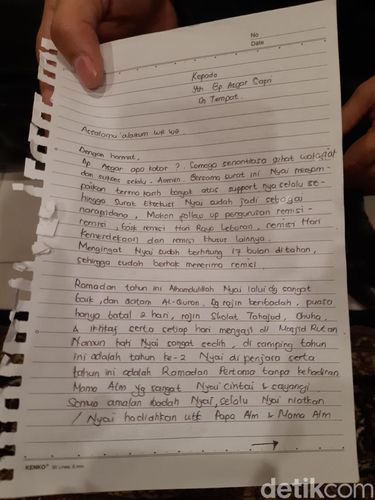 No
Date
Kepada
Yth Bp Asgar Sapri
Di Tempat.
Assalamu'alaikum wr wb
Dengan hormat,
Bp. Asgar apa kabar? Semoga senantiasa sehat walafiat
dan sukses selalu. Aamiin. Bersama surat ini Nyai menyam-
paikan terima kasih banyak atas support nya selalu se-
hingga surat Eksekusi Nyai sudah jadi sebagai
narapidana, Mohon follow up pengurusan remisi-
remisi, baik remisi Hari Raya Lebaran, remisi Hari
Kemerdekaan dan remisi khusus lainnya.
Mengingat Nyai sudah terhitung 17 bulan ditahan,
sehingga sudah berhak menerima remisi
Ramadan tahun ini Alhamdulillah Nyai lalui dg sangat
baik, dan Al-Quran. Dg rajin beribadah, puasa
hanya batal 2 hari, rajin Sholat Tahajud, Dhuha,
& iktikaf serta setiap hari mengaji di Masjid Rutan
Namun hati Nyai sangat sedih, di samping tahun
ini adalah tahun ke-2 Nyai di penjara serta
tahun ini adalah Ramadan Pertama tanpa kehadiran
Mama Alm yg sangat Nyai cintai & sayangi
Semua amalan ibadah Nyai, selalu Nyai niatkan
/ Nyai hadiahkan utk Papa Alm & Mama Alm
KENKO
detikcom